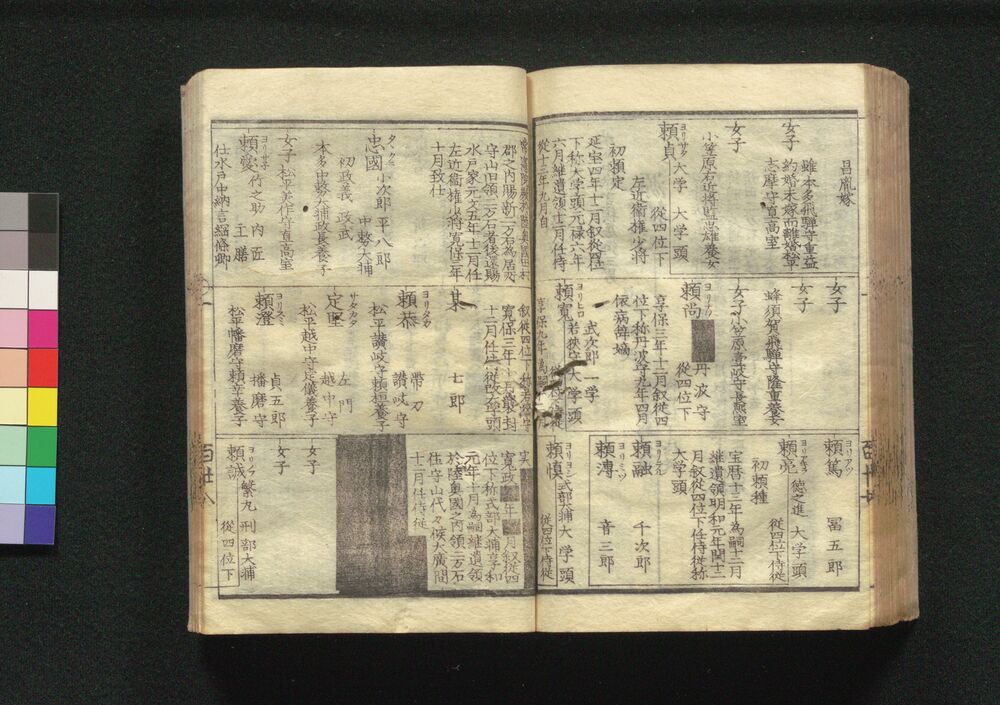 昌胤嫁
女子
雖本多飛騨守重益
約婚未嫁而離婚
志摩守直高室
女子
小笠原右近将監忠雄養女
ヨリサダ
頼貞 大学 大学頭
従四位下
左近衛権少将
初頼定
延宝四年十二月叙従四位
下称大学頭元禄六年
六月継遺領十二月任侍
従十三年九月自
郡之内賜新二万石為居所
守山旧領二万石者後還賜
水戸家元文五年十二月任
左近衛権少将寛保三年
十月致仕
タヽクニ
忠國 小次郎 平八郎
中務大輔
初政義 政武
本多中務大輔政長養子
女子 松平美作守直高室
ヨリサダ
頼愛 竹之助 内匠
主膳
仕水戸中納言綱條卿
女子
女子
蜂須賀飛騨守隆重養女
女子 小笠原喜岐守長熈室
頼尚
丹波守
従四位下
享保三年十二月叙従四
位下称丹波守九年四月
依病辞嫡
ヨリヒロ
頼寛 武次郎 一学
若狭守 大学頭
享保九年為嗣
叙従四位下称若狭守
寛保三年十月襲封
十二月任侍従改大学頭
某 七郎
ヨリタカ
頼恭 帯刀
讃岐守
松平讃岐守頼桓養子
サタカタ
定賢 左門
越中守
松平越中守定儀養子
ヨリスミ
頼澄 貞五郎
播磨守
松平播磨守頼幸養子
ヨリアツ
頼篤 冨五郎
ヨリアキラ
頼亮 徳之進 大学頭
従四位下侍従
初頼種
宝暦十二年為嗣十二月
継遺領明和元年閏十二
月叙従四位下任侍従称
大学頭
頼融 千次郎
ヨリミツ
頼溥 音三郎
ヨリヨシ
頼慎 式部大輔 大学頭
従四位下侍従
実
寛政 年 月叙従四
位下称式部大輔享和
元年十月為嗣継遺領
於陸奥國之内領二万石
住守山代々候大廣間
十二月任侍従
女子
女子
ヨリノブ
頼誠 繁九 刑部大輔
従四位下